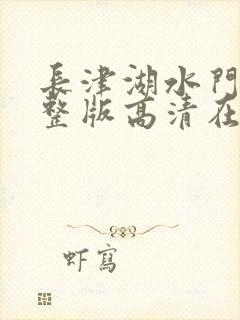 長津湖水門
整版高清在
虾寫